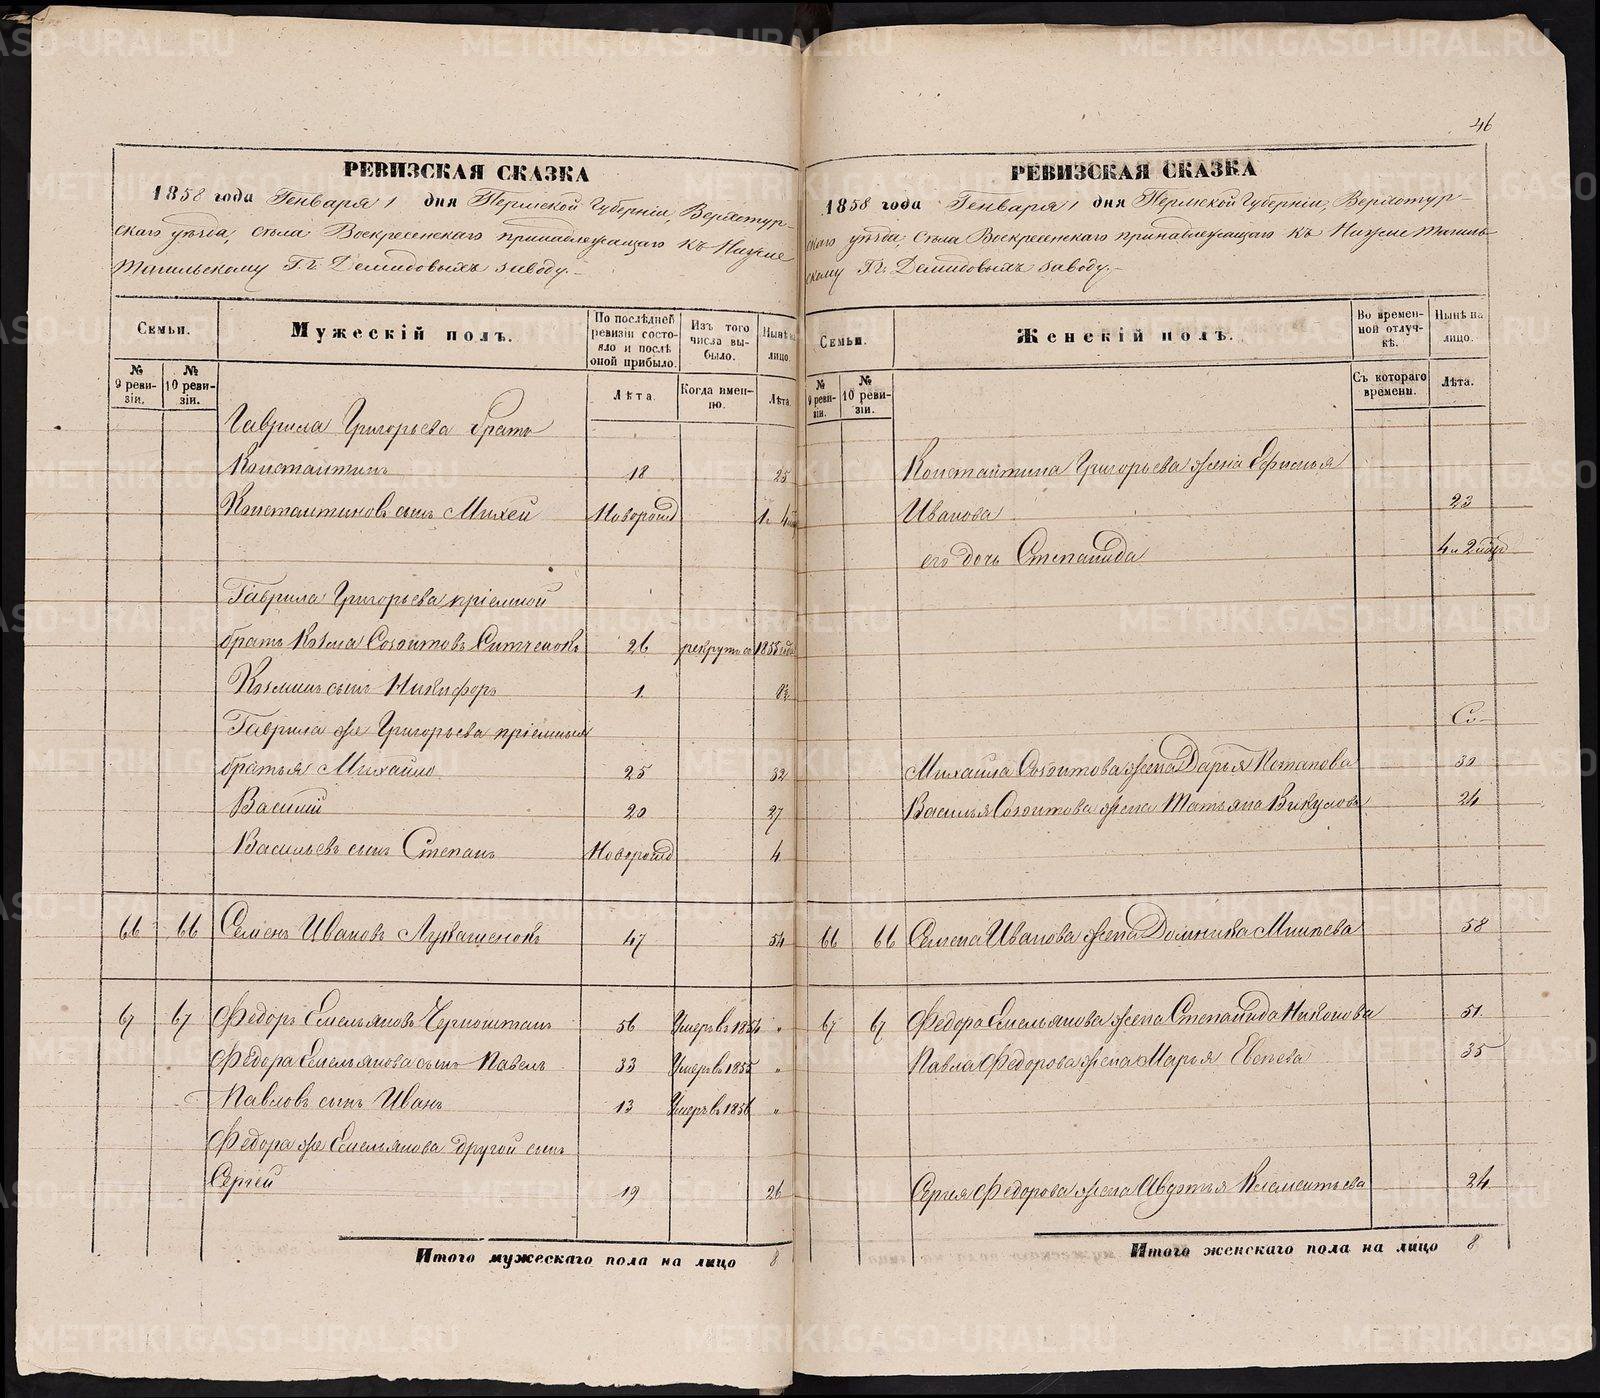 46
РЕВИЗСКАЯ СКАЗКА
1858 года Генваря 1 дня Пермской Губерніи, Верхотур-
скаго уѣзда, села Воскресенскаго принадлежащаго къ Нижне
Тагильскому Гг. Демидовыхъ заводу.
Семьи.
Мужескій полъ.
По послѣдней ревизіи состояло и послѣ оной прибыло.
Изъ того числа выбыло.
Нынѣ на лицо.
№ 9 ревизіи.
№ 10 ревизіи.
Лѣта.
Когда именно.
Лѣта.
Гаврила Григорьева братъ
Константинъ 18 25
Константиновъ сынъ Михей Новорожд 1
Гаврила Григорьева пріемной
братъ Козма Созонтовъ 26 рекрутъ 1855
Козминъ сынъ Никифоръ 1. 8
Гаврила же Григорьева пріемныя
братья Михайло 25 32
Василій 20 27
Васильевъ сынъ Степанъ Новорожд 4
66 66 Семенъ Ивановъ Лукашенокъ 47 54
67 67 Федоръ Емельяновъ 56 Умеръ въ 1854 „
Федора Емельянова сынъ Павелъ 33 Умеръ въ 1855 „
Павловъ сынъ Иванъ 13 Умеръ въ 1856 „
Федора же Емельянова другой сынъ
Сергей 19 26
Итого мужескаго пола на лицо 8
РЕВИЗСКАЯ СКАЗКА
1858 года Генваря 1 дня Пермской Губерніи, Верхотур-
скаго уѣзда, села Воскресенскаго принадлежащаго къ Нижне Тагиль-
скому Гг. Демидовыхъ заводу.
Семьи.
Женскій полъ.
Во временной отлучкѣ.
Нынѣ на лицо.
№ 9 ревизіи.
№ 10 ревизіи.
Съ котораго времени.
Лѣта.
Константина Григорьева жена Офимья
Иванова 23
его дочь Степанида 4 и 2 мѣс
Михайла Созонтова жена Дарья Потапова 30
Василья Созонтова жена Татьяна Викулова 24
66 66 Семена Иванова жена Домника 58
67 67 Федора Емельянова жена Степанида Никонова 51
Павла Федорова жена Марья 35
Сергея Федорова жена Авдотья Клементьева 24
Итого женскаго пола на лицо 8
METRIKI.GASO-URAL.RU